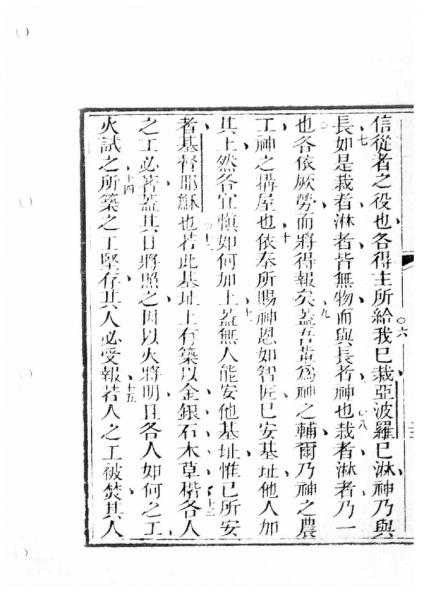 信從者之役也各得主所給六我巳栽亞波羅巳淋神乃與
長七如是栽者淋者皆無物而與長者神也八栽者淋者乃一
也各依厥勞而將得報矣九蓋吾輩為神之輔爾乃神之農
工神之搆屋也十依奉所賜神恩如智匠巳安基址他人加
其上然各宜慎如何加上十一蓋無人能安他基址惟巳所安
者基督耶穌也十二若此基址上有築以金銀石木草楷十三各人
之工必著蓋其日將照之因以火將明且各人如何之工
火試之十四所築之工堅存其人必受報十五若人之工被焚其人